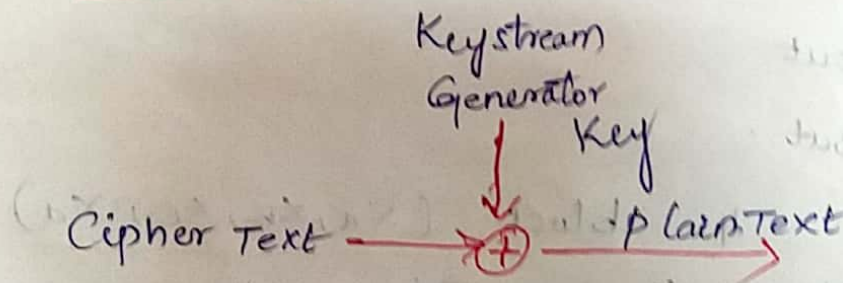 Keystream
Generator
Key
Cipher Text
plain Text